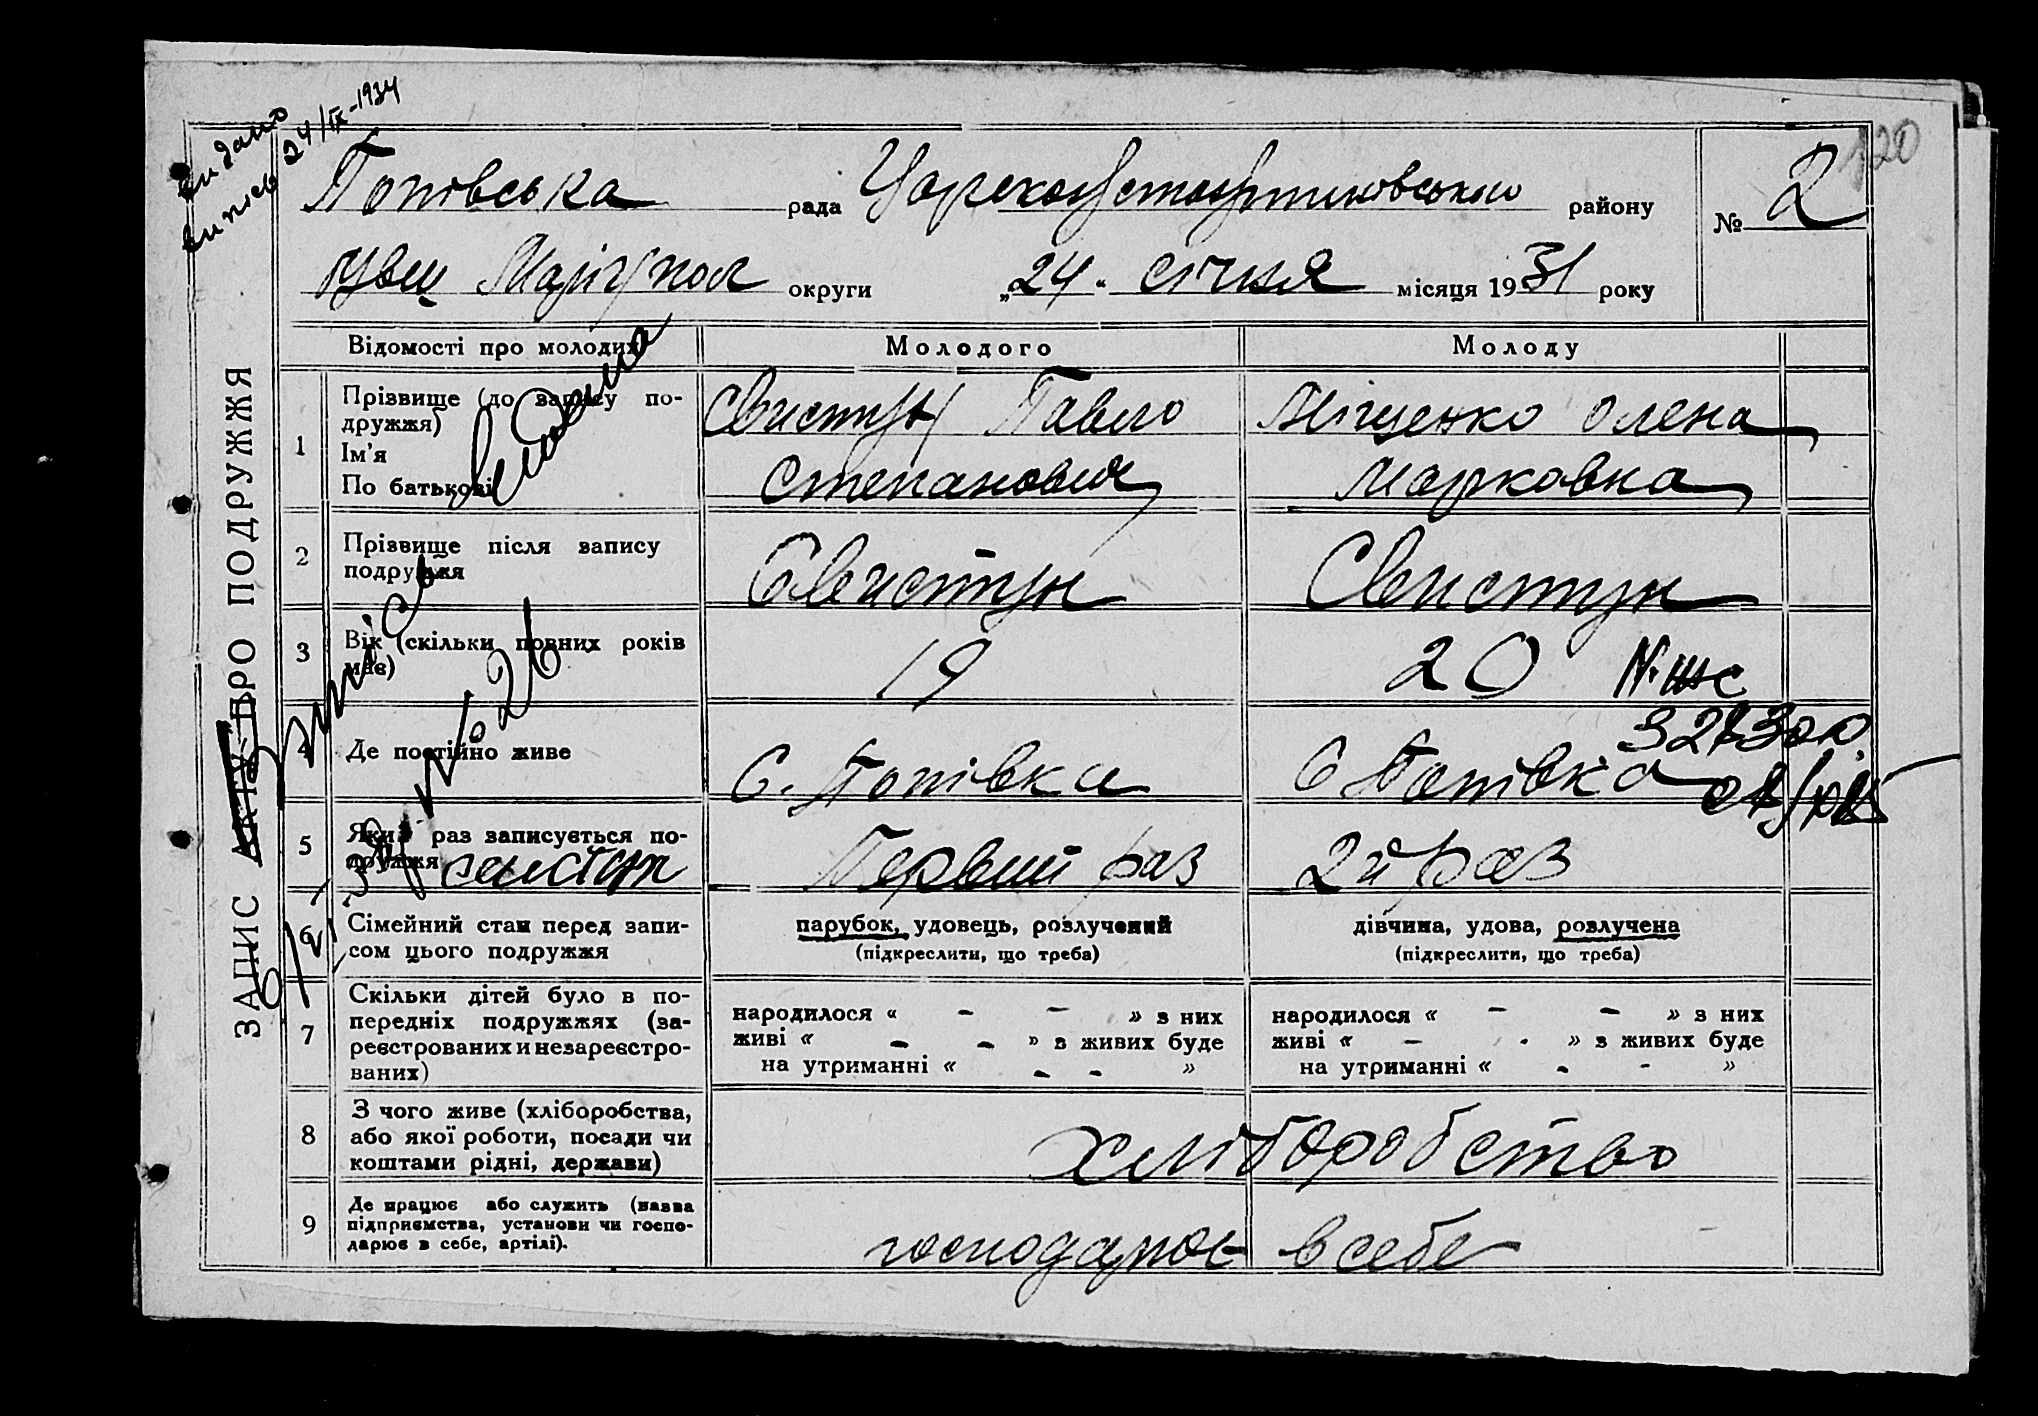 видано
випись 24/IX-1934
120
Попівська рада района району № 2
Маріупол округи „24“ січня місяця 1931 року
ЗАПИС АКТУ ПРО ПОДРУЖЖЯ
Відомості про молодих Молодого Молоду
1 Прізвище (до запису по-
дружжя)
Ім'я
По батькові
Свистун Павло
Степанович
Міщенко Олена
Марковна
2 Прізвище після запису
подружжя
Свистун
Свистун
3 Вік (скільки повних років
має)
19
20
4 Де постійно живе
С. Попівка
С Попівка
5 Який раз записується по-
дружжя
Первий раз
2й раз
6 Сімейний стан перед запи-
сом цього подружжя
парубок, удовець, розлучений
(підкреслити, що треба)
дівчина, удова, розлучена
(підкреслити, що треба)
7 Скільки дітей було в по-
передніх подружжях (за-
реєстрованих и незареєстро-
ваних)
народилося « - - » з них
живі « - - » з живих буде
на утриманні « - - »
народилося « - - » з них
живі « - - » з живих буде
на утриманні « - - »
8 З чого живе (хліборобства,
або якої роботи, посади чи
коштами рідні, держави)
хліборобство
9 Де працює або служить (назва
підприємства, установи чи госпо-
дарює в себе, артілі).
господарює в себе
Видана
випись
№ 26